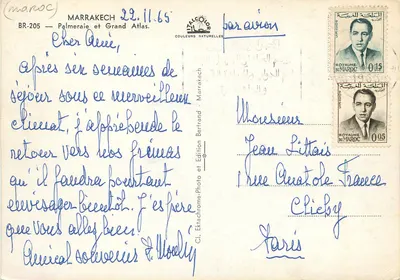 (maroc)
MARRAKECH 22.11.65
BR-205 - Palmeraie et Grand Atlas.
Cher Ami,
après semaines de
séjour sous ce merveilleux
climat, j'appréhende le
retour vers nos frimas
qu'il faudra pourtant
envisager bientôt. J'espère
que vous allez bien
Amical souvenir
COULEURS NATURELLES
Cl. Ektachrome-Photo et Edition Bertrand Marrakech
par avion
ROYAUME
DU MAROC 0.15
ROYAUME
DU MAROC 0.05
Monsieur
Jean Littais
1 rue Anatole France
Clichy
Paris